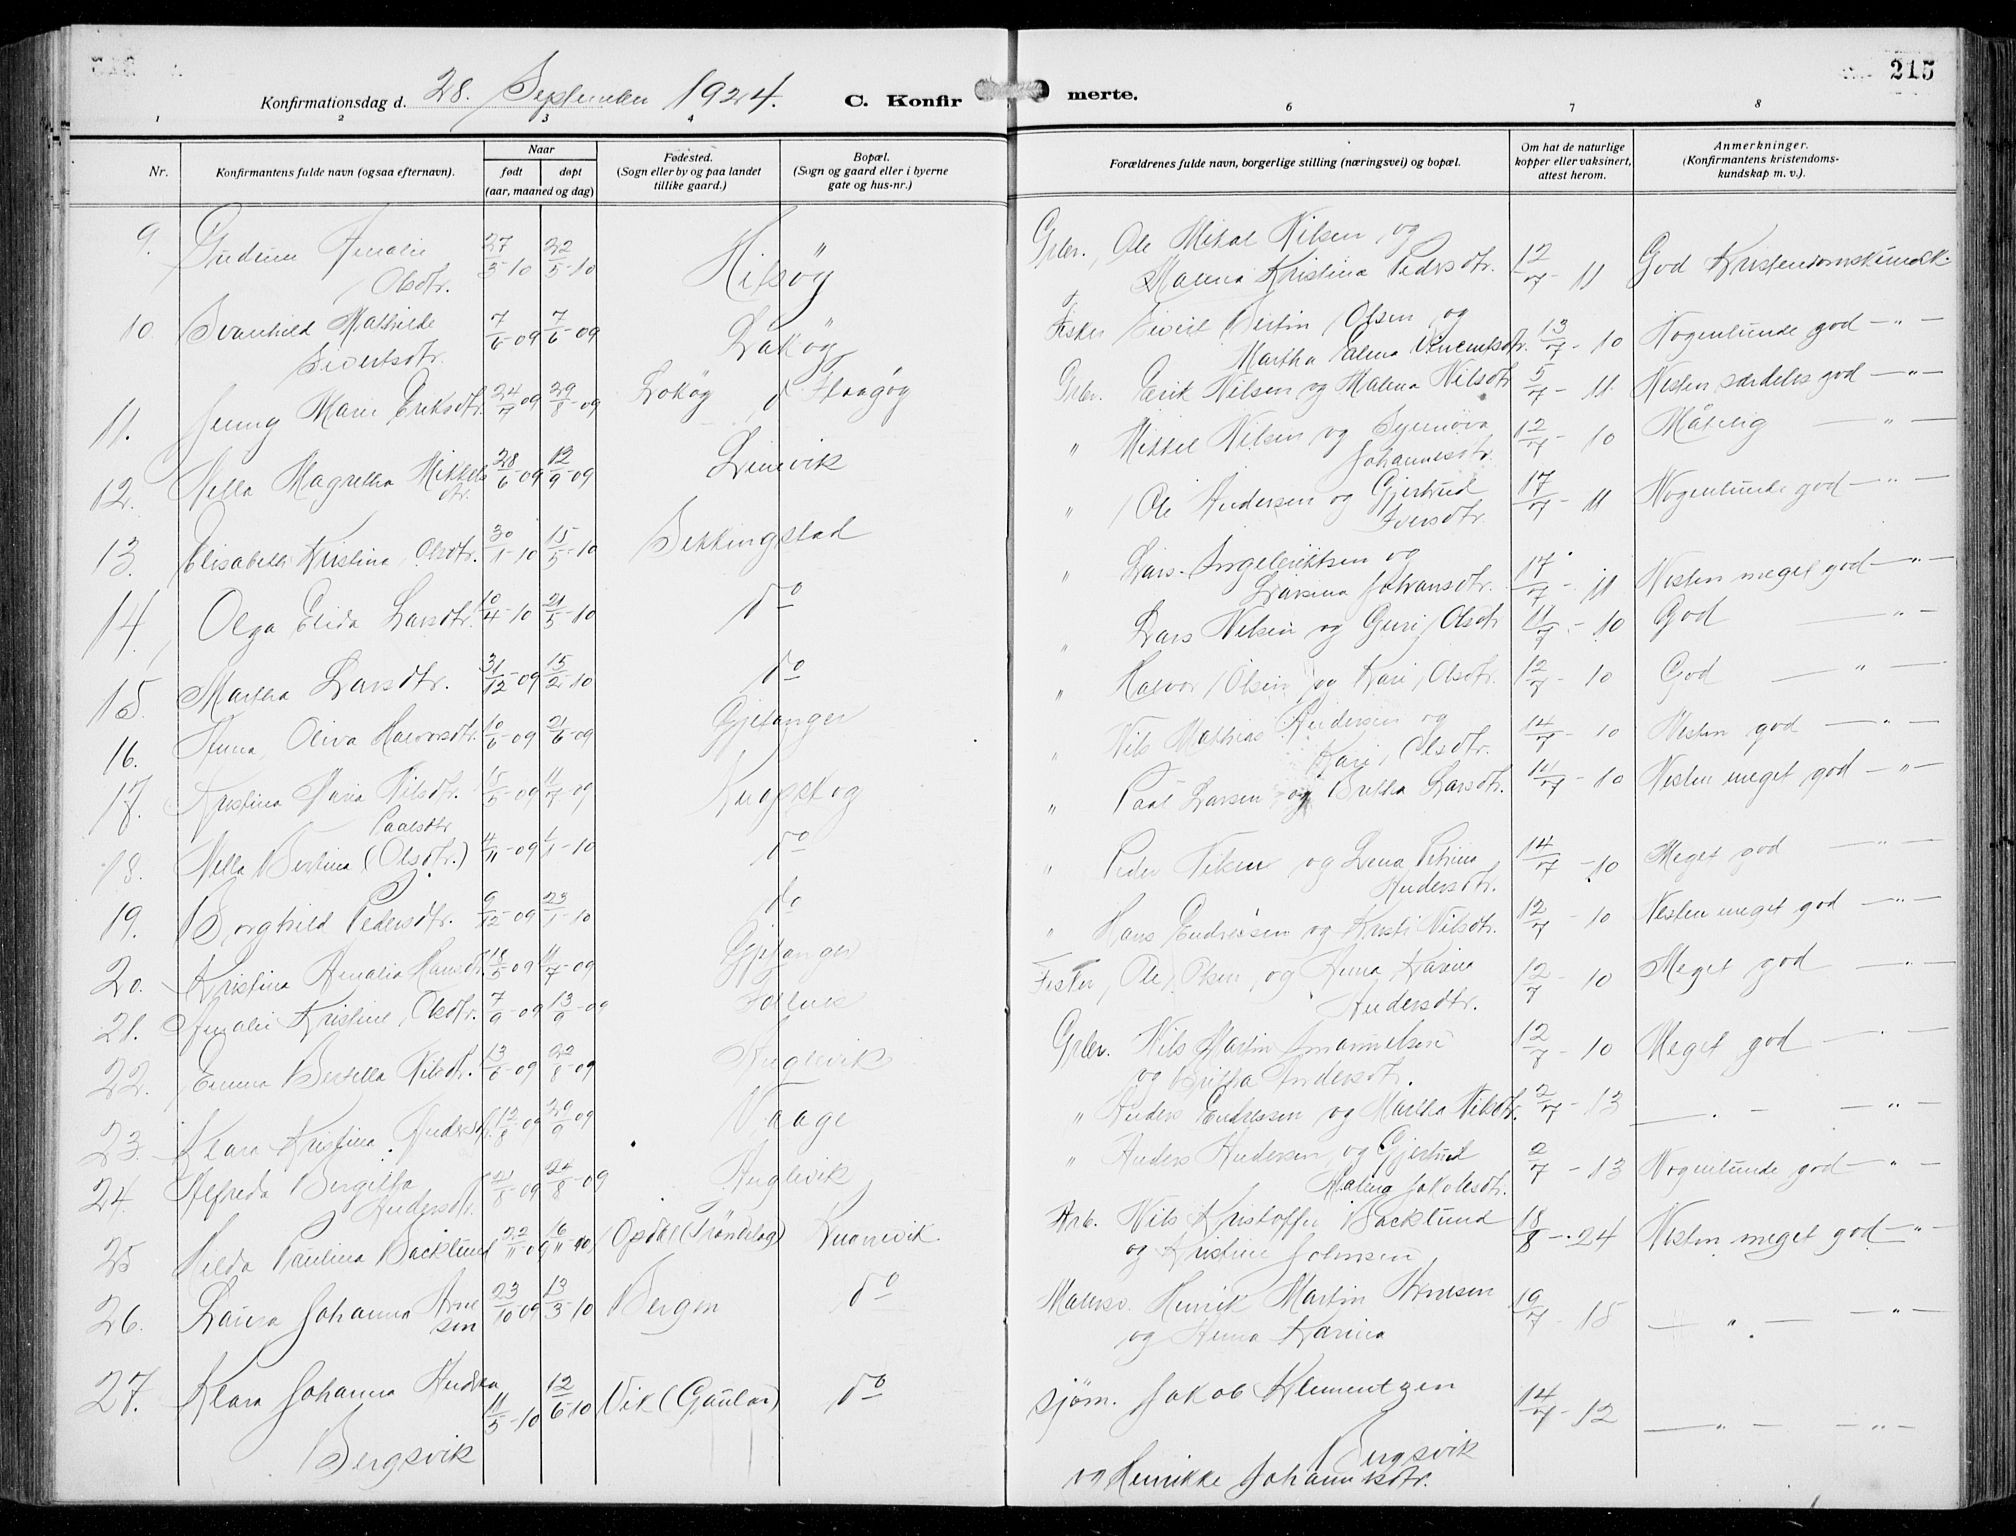 215
Konfirmationsdag d. 28. September 1924. C. Konfirmerte.
1 2 3 4 6 7 8
Nr. Konfirmantens fulde navn (ogsaa efternavn). Naar født døpt (aar, maaned og dag) Fødested. (Sogn eller by og paa landet tillike gaard.) Bopæl. (Sogn og gaard eller i byerne gate og hus-nr.) Forældrenes fulde navn, borgerlige stilling (næringsvei) og bopæl. Om hat de naturlige kopper eller vaksinert, attest herom. Anmerkninger. (Konfirmantens kristendomskundskap m. v.).
9. Gudrun Amalie Olsdtr. 27/3-10 22/5-10 Hilsøy " Grbr. Ole Mikal Nilsen og Malena Kristina Pedersdtr. 12/7-11 God Kristendomskundsk.
10 Svanhild Mathilde Sivertsdtr. 7/6-09 7/6-09 Lokøy " Fisker Sivert Bertin Olsen og Martha Malena Vincentsdtr. 13/7-10 Nogenlunde god — " —
11. Jenny Marie Eriksdtr. 24/7 09 29/8-09 Lokøy Flaagøy Grbr. Erik Nilsen og Malena Nilsdtr 5/7-11. Nesten særdeles god — " —
12. Nella Magretha Mikkelsdtr. 28/6-09 12/9-09 Limvik " Mikkel Nilsen og Synnøva Johannesdtr. 12/7-10 Måtelig — " —
13. Elisabeth Kristina Olsdtr. 30/1-10 15/5-10 Bekkingstad " Ole Andersen og Gjertrud Iversdtr. 17/7-11 Nogenlunde god — " —
14. Olga Elida Larsdtr. 10/4-10 21/5-10 do " Lars Ingebriktsen og Larsina Johansdtr. 17/7-11 Nesten meget god — " —
15. Martha Larsdtr. 31/12-09 15/2-10 do " Lars Nilsen og Guri Olsdtr 11/7-10 God — " —
16. Anna Oliva Halvorsdtr. 10/6-09 21/6-09 Gjetanger " Halvor Olsen og Kari Olsdtr. 12/7-10 God — " —
17. Kristina Maria Nilsdtr. 15/5-09 11/7-09 Knapskog " Nils Mathias Andersen og Kari Olsdtr. 14/7-10 Nesten god — " —
18. Nella Bertina Paalsdtr (Olsdtr.) 4/11-09 1/1-10 do " Paal Larsen og Britha Larsdtr. 14/7-10 Nesten meget god — " —
19. Borghild Pedersdtr. 9/12-09 23/1-10 do " Peder Nilsen og Lena Petrina Andersdtr. 14/7-10 Meget god — " —
20. Kristina Amalia Hansdtr. 16/5-09 11/7-09 Gjetanger " Hans Endresen og Kristi Nilsdtr. 12/7-10 Nesten meget god — " —
21. Amalie Kristine Olsdtr. 7/9-09 13/9-09 Fisker, Ole Olsen og Anna Karina Andersdtr. 12/7-10 Meget god — " —
22. Emma Bertella Nilsdtr. 13/6-09 22/8-09 Anglevik Grbr. Nils Martin Imanuelsen og Britha Andersdtr. 12/7-10 Meget god — " —
23. Klara Kristina Andersd. 12/8 09 29/9 09 Vaage " Anders Endresen og Martha Nilsdtr. 2/7-13 — " — — " —
24. Alfreda Bergitha Andersdtr. 4/8-09 22/8-09 Anglevik " Anders Andersen og Gjertrud Malena Jakobsdtr. 2/7-13 Nogenlunde god — " —
25 Hilda Paulina Backlund 22/11 09 16/11 10 Opdal (Trøndelag) Knarrvik. Arb. Nils Kristoffer Backlund og Kristine Johnsen 18/8-24 Nesten meget god — " —
26. Laura Johanna Arnesen 23/10 09 13/3-10 Bergen do Malersv. Henrik Martin Arnesen og Anna Karina 19/7-15 — " — — " —
27. Klara Johanna Andrea Bergsvik 11/5-10 12/6-10 Vik (Gaular) do sjøm. Jakob Klementzen Bergsvik og Henrikke Johannesdtr. 14/7-12 — " — — " —